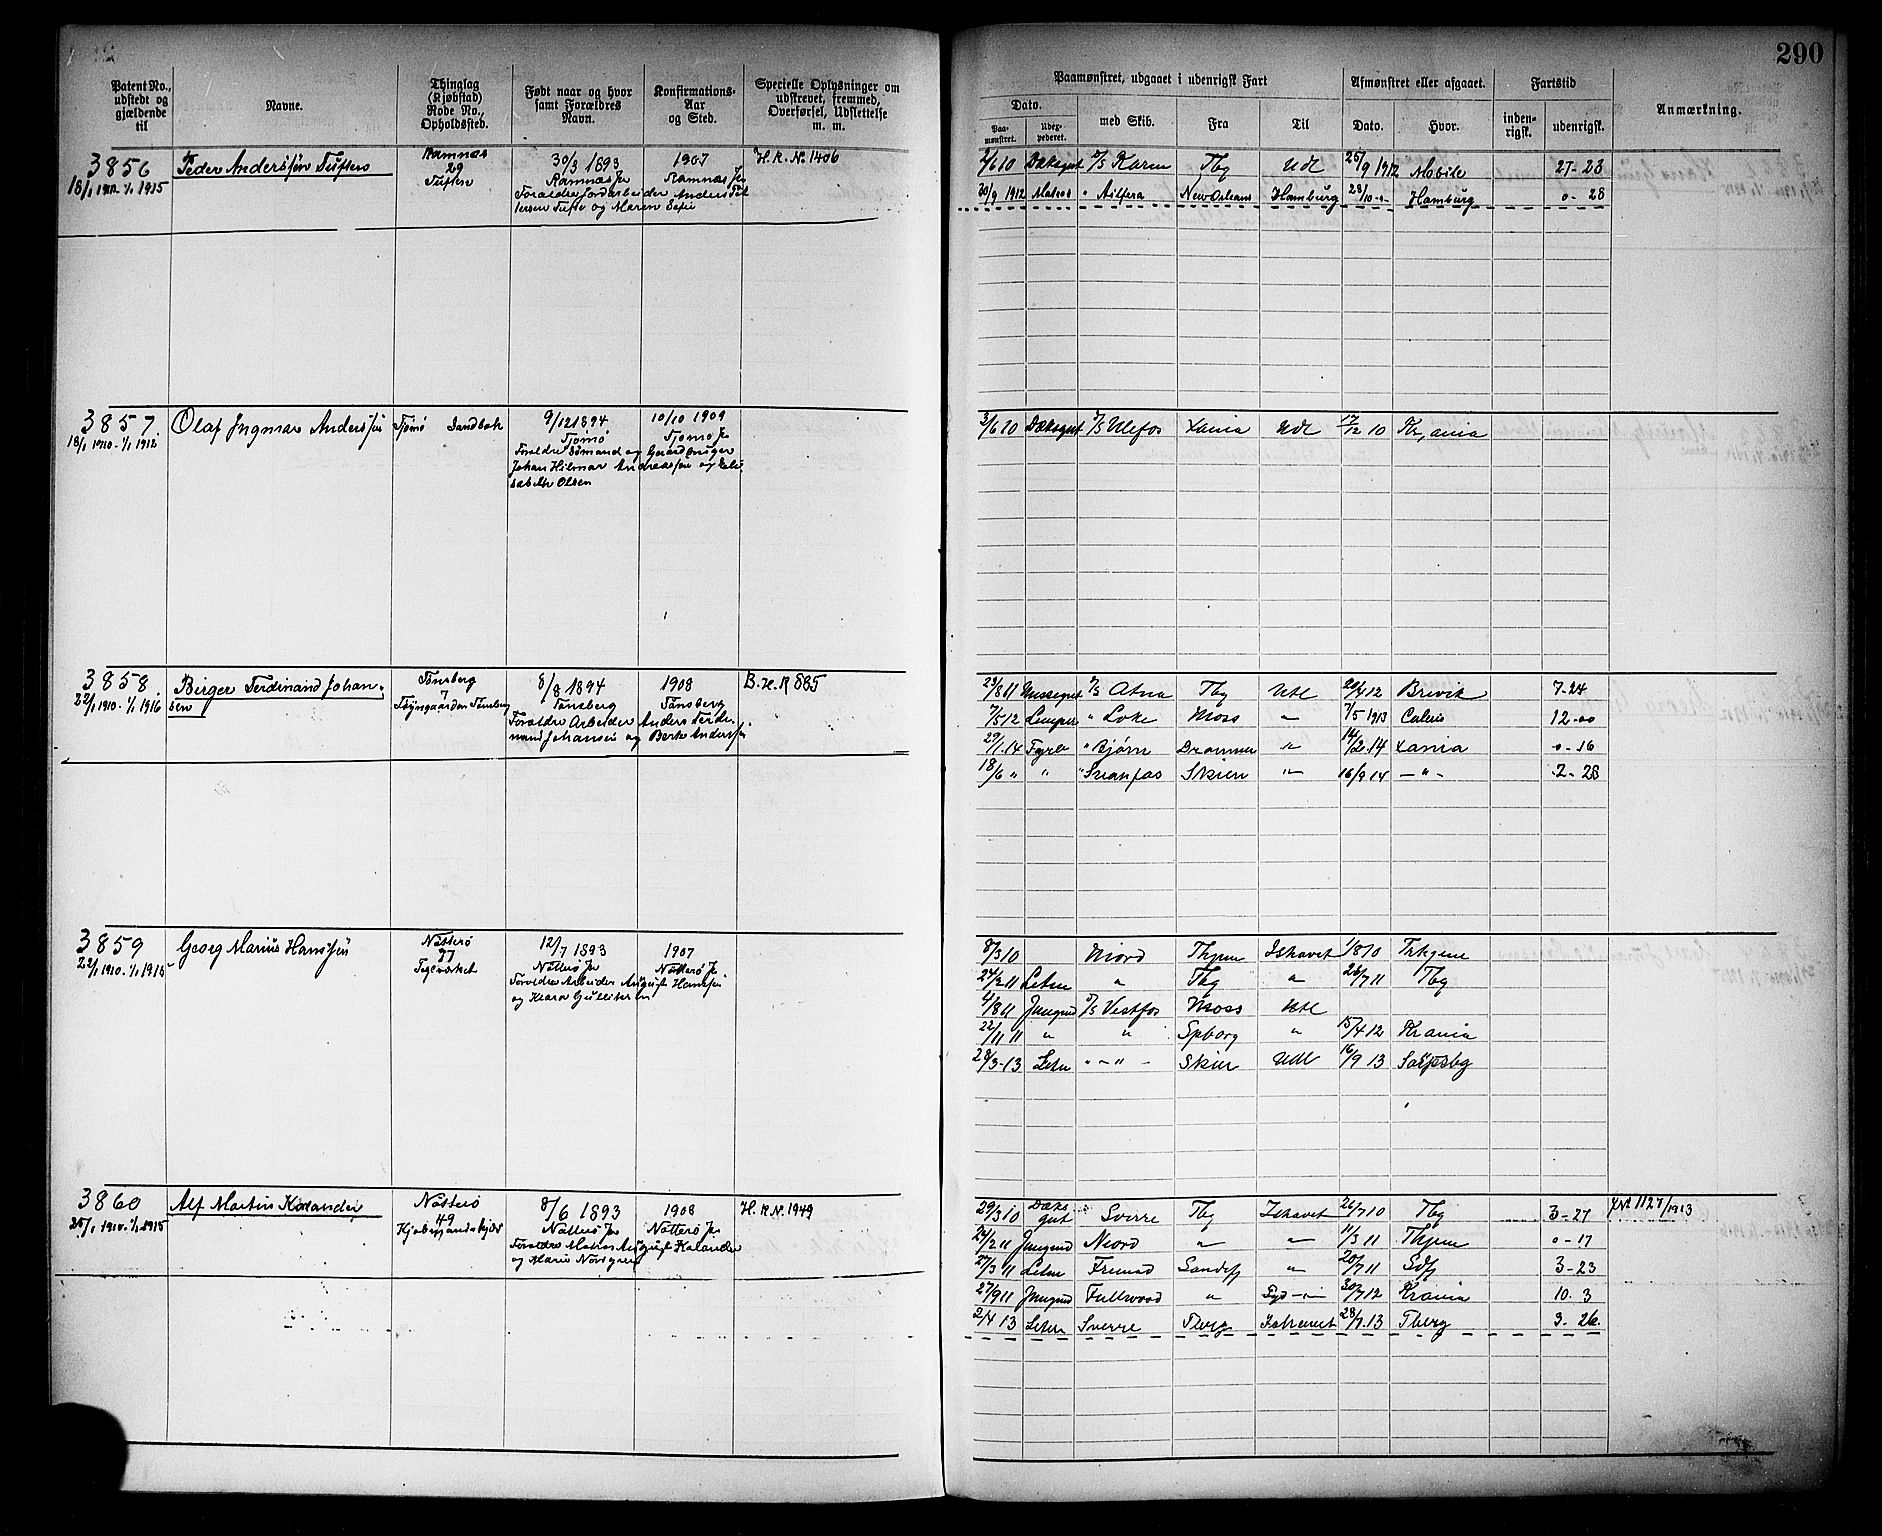 290
Patent No., udstedt og gjældende til
Navne.
Thinglag (Kjøbstad) Rode No., Opholdssted.
Født naar og hvor samt Forældres Navn.
Konfirmations-Aar og Sted.
Specielle Oplysninger om udskrevet, fremmed, Overførsel, Udslettelse m. m.
Paamønstret, udgaaet i udenrigsk Fart
Dato.
Paamønstret.
Udexpederet.
med Skib.
Fra
Til
Afmønstret eller afgaaet.
Dato.
Hvor.
Fartstid
indenrigsk.
udenrigsk.
Anmærkning.
3856
18/1 1910-1/1 1915
Peder Anderssøn Tuften
Ramnæs
29
Tuften
30/3 1893
Ramnæs Js
Forældre Jordarbeider Anders
Tufte og Maren
1907
Ramnæs Js
H.R. No. 1406
2/6 10 Dæksgut S/S Karen Tbg Udl 25/9 1912 Mobile 27-23
30/9 1912 Matros " New Orleans Hamburg 28/10 -"- Hamburg 0-28
3857.
18/1 1910-1/1 1912
Olaf Ingmar Anderssen
Tjømø Sandbæk
9/12 1894
Tjømø
Forældre Sømand og Gaardbruger
Johan Hilmar Andreassen og Eli-
sabeth Olsen
10/10 1909
Tjømø Js
3/6 10 Dæksgut S/S Ulefos Xania Udl 17/12 10 Kr,ania
3858.
22/1 1910-1/1 1916
Birger Ferdinand Johan-
sen
Tønsberg
7
Tønsberg
8/8 1894
Tønsberg
Forældre Arbeider Anders Ferdi-
nand Johansen og Berte Anderssen
1908
Tønsberg
B.H.R 885
23/8 11 Messegut S/S Atna Tbg Utl 20/4 12 Brevik 7-24
7/5 12 Lemper " Loke Moss " 7/5 1913 Calais 12-00
29/1 14 Fyrb " Bjørn Drammen " 14/2 14 Xania 0-16
18/6 " " " Svanfos Skien " 16/9 14 -"- 2-28
3859
22/1 1910-1/1 1915
Georg Marius Hanssen
Nøtterø
77
Teieværket
12/7 1893
Nøtterø Js
Forældre Arbeider August Hanssen
og Klara Gulliksen
1907
Nøtterø Js
8/3 10 Njord Thjem Ishavet 1/8 10
24/2 11 Letm " Tbg " 28/7 11 Tbg
4/8 11 Jungmd S/S Vestfos Moss Utl
22/11 11 " " Spborg " 15/4 12 Krania
28/3-13 Letm " -"- Skien Udl 16/9 13 Sarpsbg
3860
25/1 1910-1/1 1915
Alf Martin Kalander
Nøtterø
49
8/6 1893
Nøtterø Js
Forældre Matros August Kalander
og Marie
1908
Nøtterø Js
H.R.N. 1949
29/3 10 Dæksgut Sverre Tbg Ishavet 26/7 10 Tbg 3-27
1127/1913
24/2 11 Jungmd Njord " " 11/3 11 Thjem 0-17
27/3 11 Letm Fremad Sandefj " 20/7 11 Sdfj 3-23
27/9 11 Jungmd Fullwood " Syd-"- 30/7 12 Krania 10-3
2/4 13 Letm Sverre Tberg Ishavet 28/7 13 Tberg 3-26